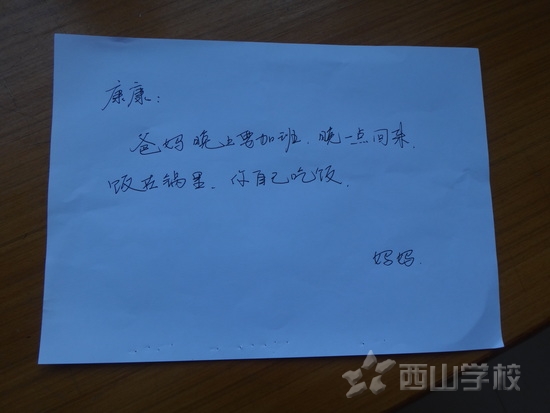 康康：
爸妈晚上要加班、晚一点回来.
饭在锅里、你自己吃饭.
妈妈.
西山学校